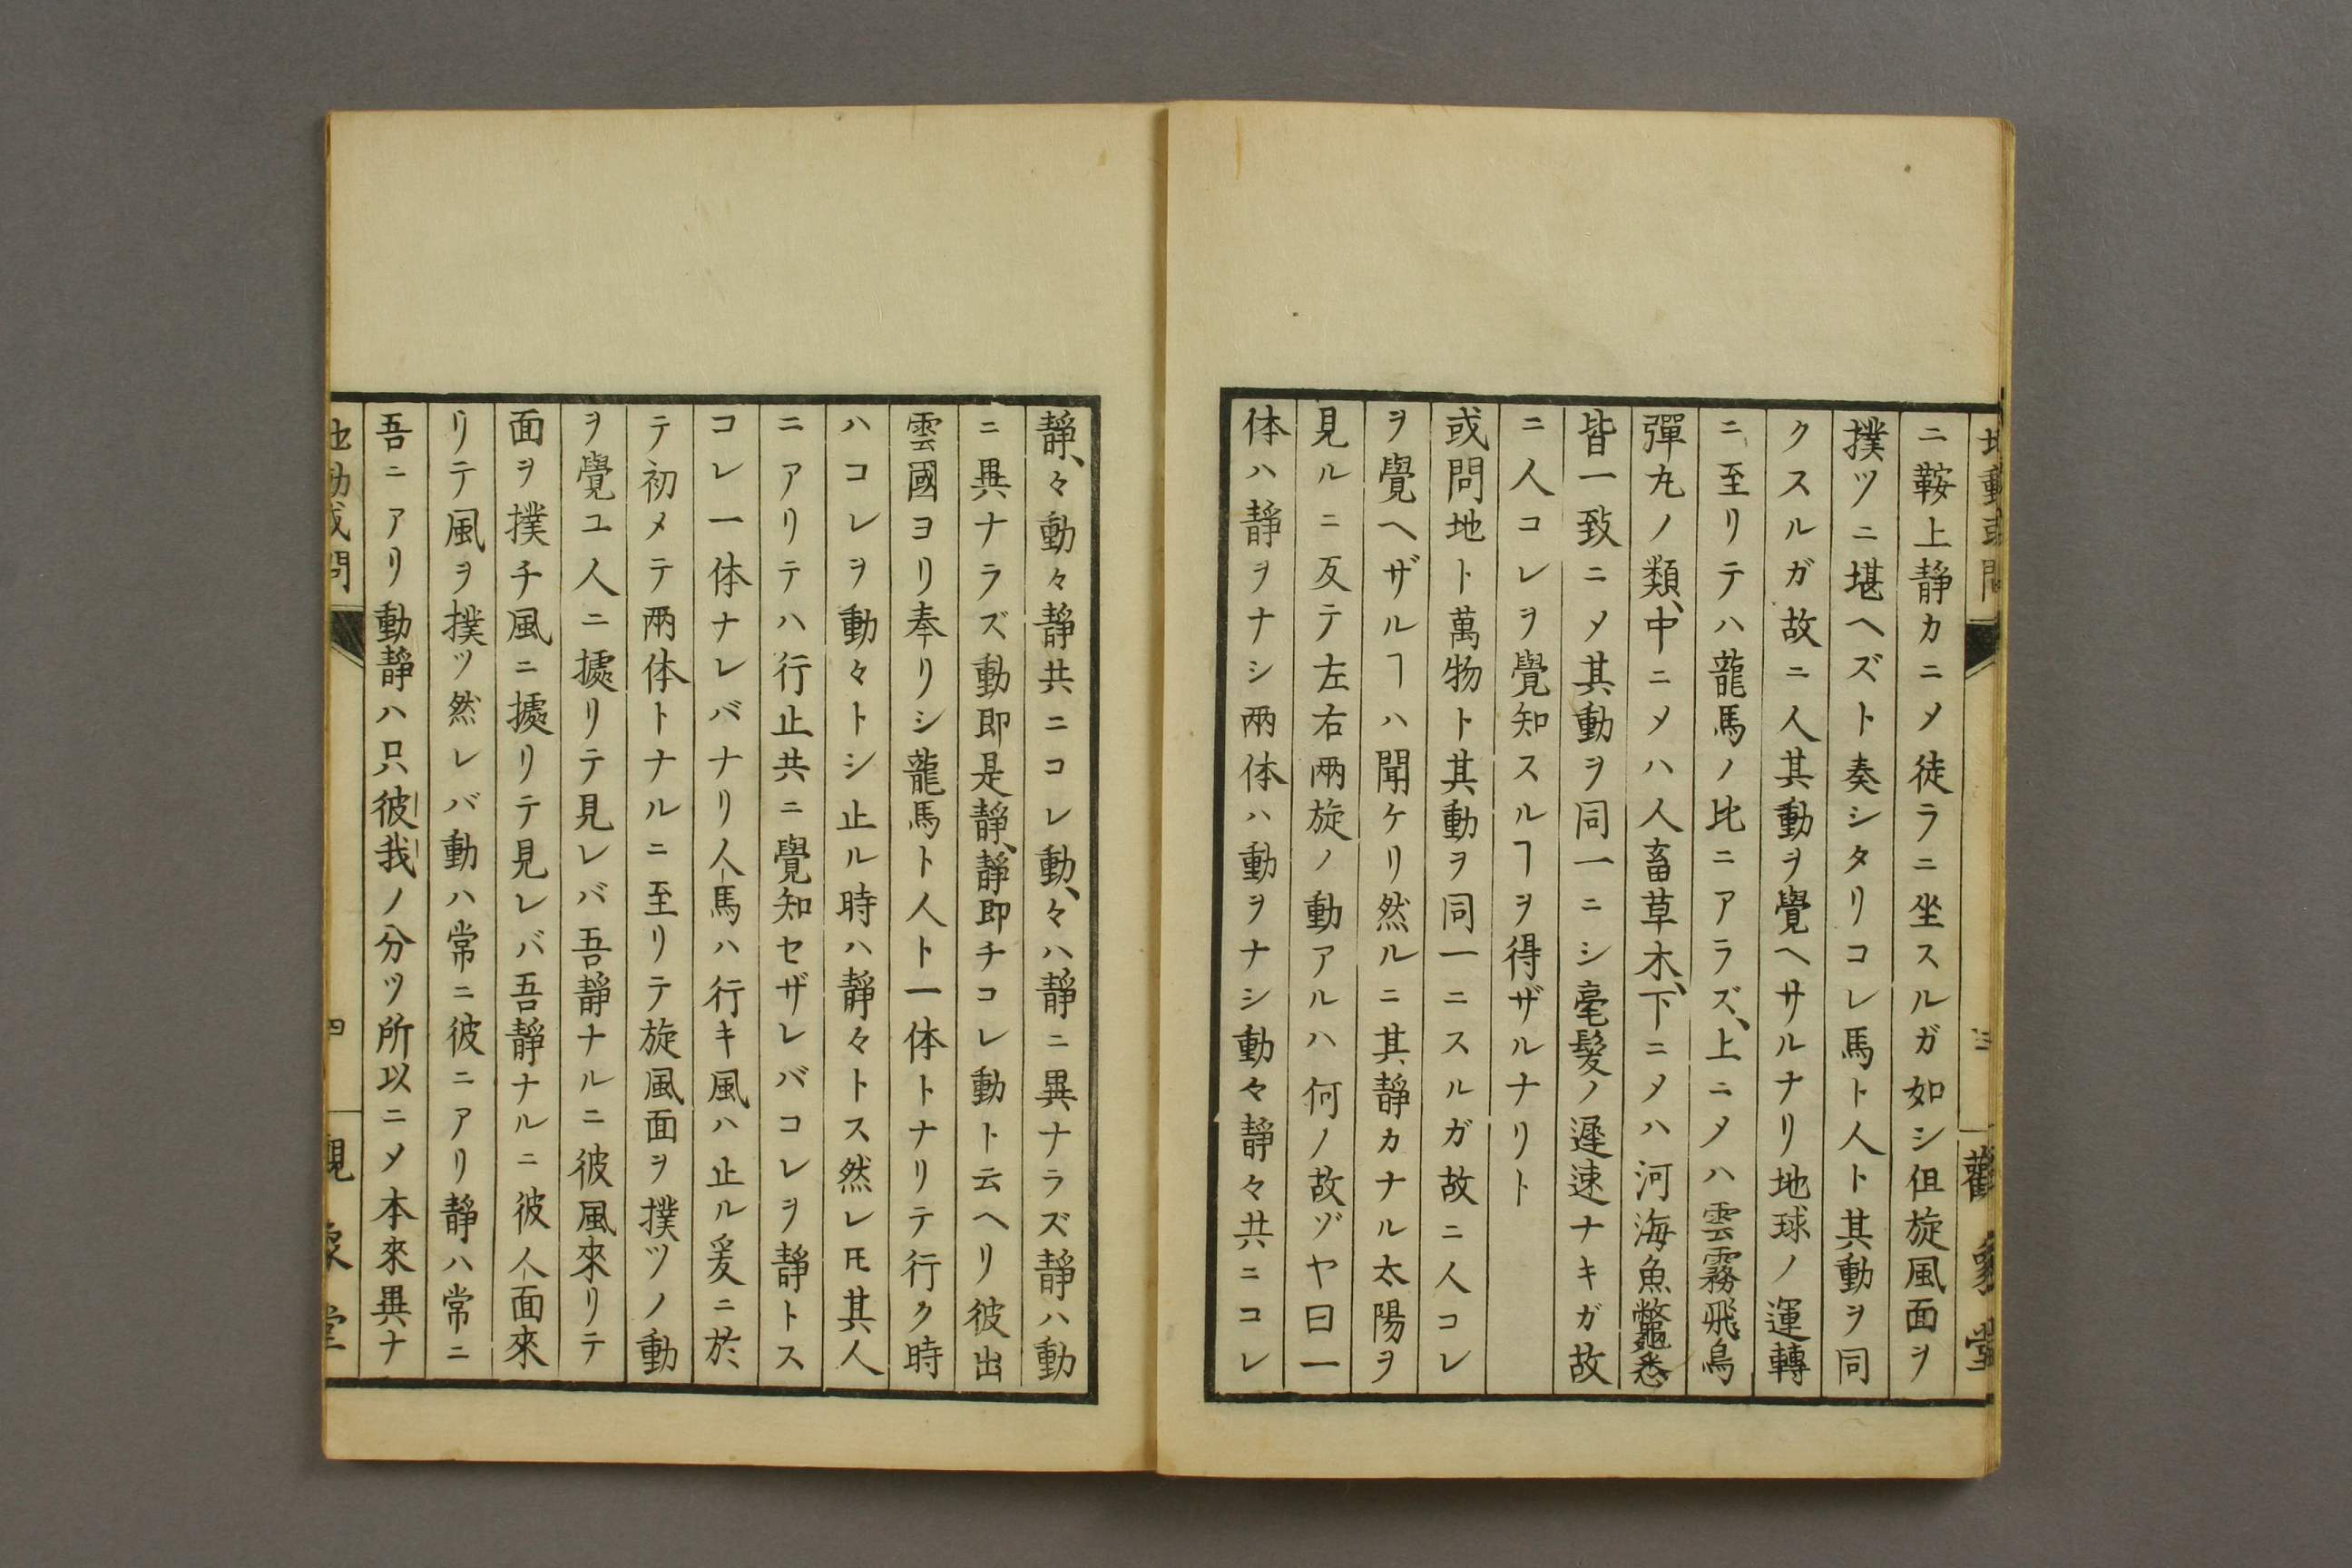 地動或問
三
觀象堂
ニ鞍上静カニメ徒ラニ坐スルガ如シ但旋風面ヲ
撲ツニ堪ヘズト奏シタリコレ馬ト人ト其動ヲ同
クスルガ故ニ人其動ヲ覺ヘサルナリ地球ノ運轉
ニ至リテハ龍馬ノ比ニアラズ、上ニメハ雲霧飛鳥
彈丸ノ類、中ニメハ人畜草木、下ニメハ河海魚鼈悉
皆一致ニメ其動ヲ同一ニシ毫髮ノ遲速ナキガ故
ニ人コレヲ覺知スルヿヲ得ザルナリト
或問地ト萬物ト其動ヲ同一ニスルガ故ニ人コレ
ヲ覺ヘザルヿハ聞ケリ然ルニ其静カナル太陽ヲ
見ルニ反テ左右兩旋ノ動アルハ何ノ故ゾヤ曰一
体ハ静ヲナシ兩体ハ動ヲナシ動々静々共ニコレ
静、々動々静共ニコレ動、々ハ静ニ異ナラズ静ハ動
ニ異ナラズ動即是静、静即チコレ動ト云ヘリ彼出
雲國ヨリ奉リシ龍馬ト人ト一体トナリテ行ク時
ハコレヲ動々トシ止ル時ハ静々トス然レ𪜈其人
ニアリテハ行止共ニ覺知セザレバコレヲ静トス
コレ一体ナレバナリ人馬ハ行キ風ハ止ル爰ニ於
テ初メテ兩体トナルニ至リテ旋風面ヲ撲ツノ動
ヲ覺ユ人ニ據リテ見レバ吾静ナルニ彼風來リテ
面ヲ撲チ風ニ據リテ見レバ吾静ナルニ彼人面來
リテ風ヲ撲ツ然レバ動ハ常ニ彼ニアリ静ハ常ニ
吾ニアリ動静ハ只彼我ノ分ツ所以ニメ本來異ナ
地動或問
四
觀象堂